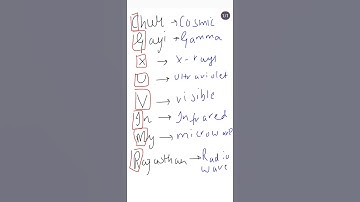 Chhur → Cosmic
Gayi → Gamma
X → x-rays
U → ultraviolet
V → visible
In → Infrared
My → microwave
Rajasthan → Radio
wave